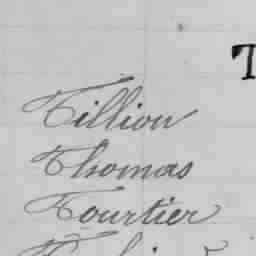 T
Tillion
Thomas
Tourtier